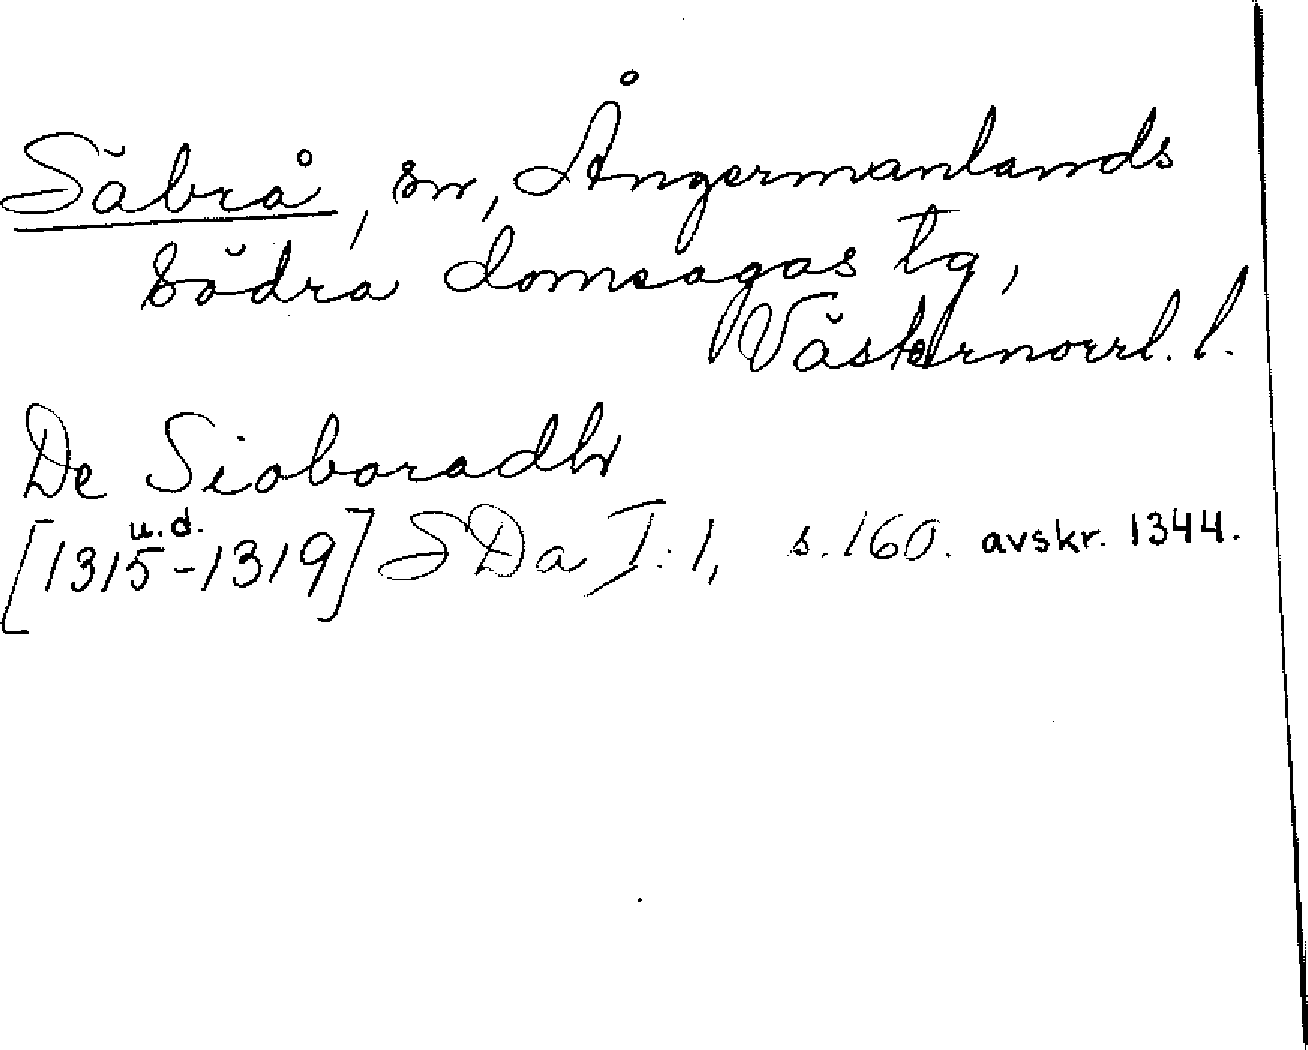 Säbrå, sn, Ångermanlands
södra domsagas tg,
Västernorrl. l.
De Sioboradh
u. d.
[1315-1319] SDa I: 1, s. 160. avskr. 1344.